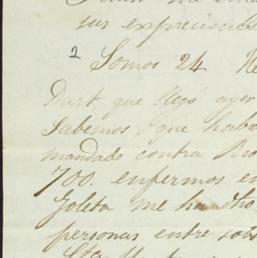 sus expreciones
2 Somos 24. He
Dart, que llegó ayer
Sabemos, que habi
mandado contra Rio
700. enfermos en
Goleta me ha dho
personas entre sol